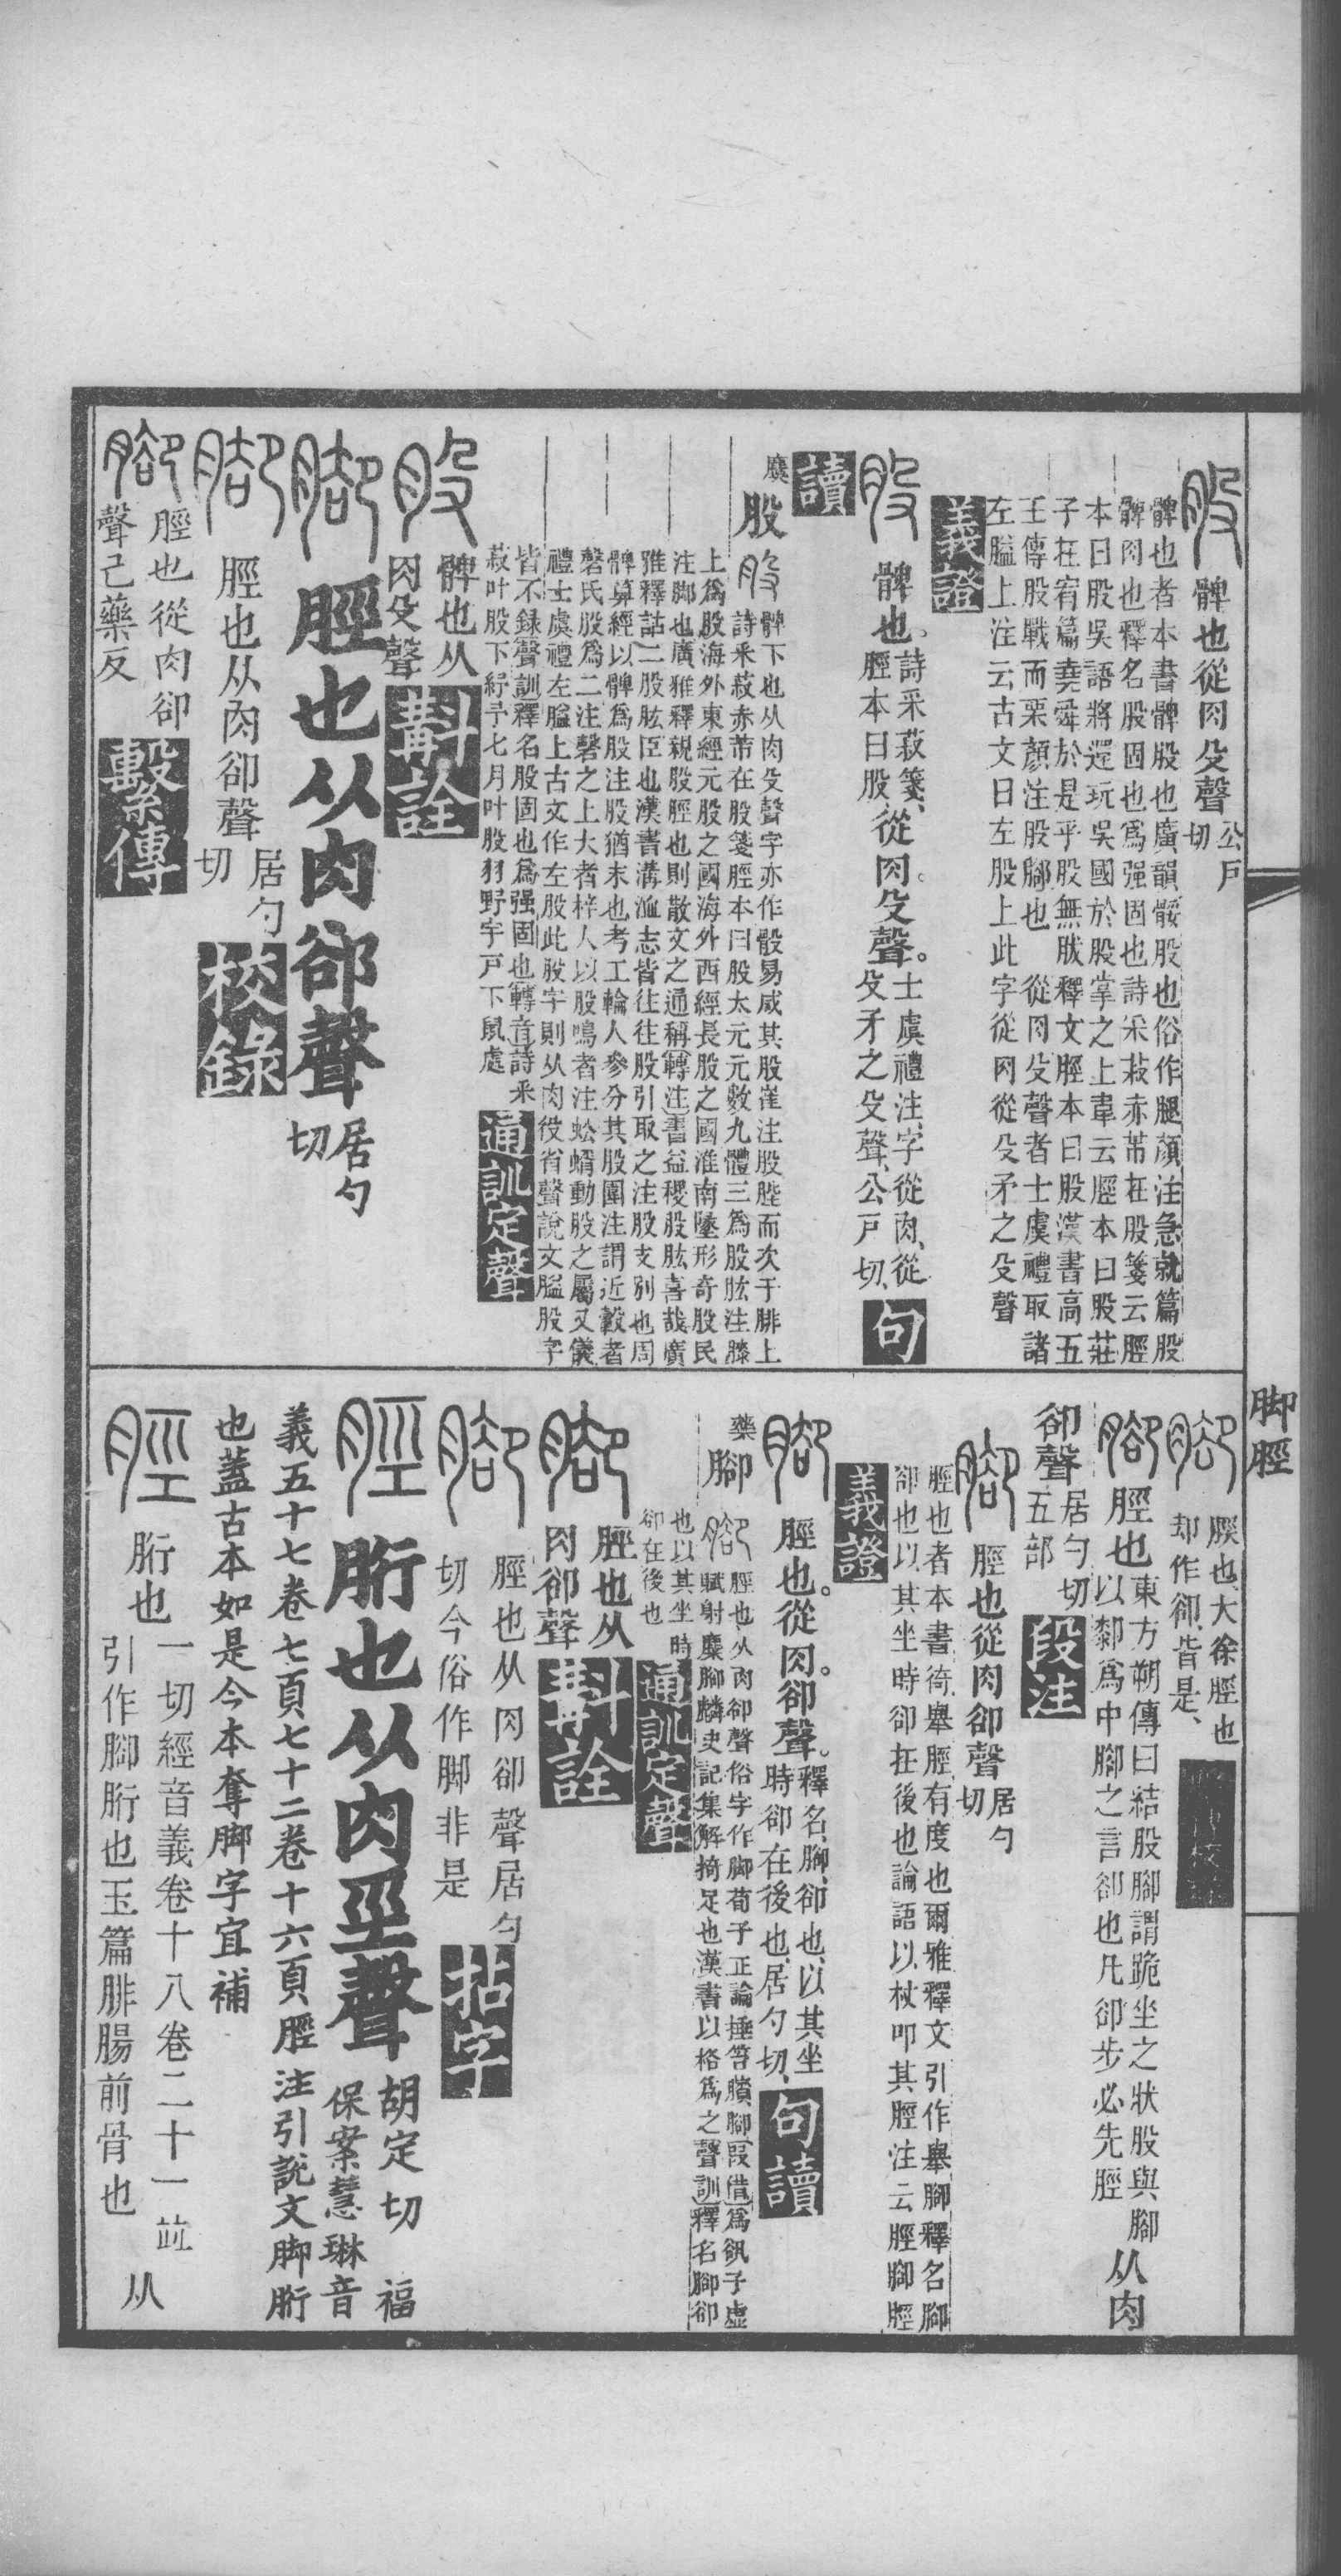 股 髀也從肉殳聲 公戶
切
髀也者本書髀股也廣韻骽股也俗作腿顏注急就篇股
髀肉也釋名股固也爲强固也詩采菽赤芾在股箋云脛
本曰股吳語將還玩吳國於股掌之上韋云脛本曰股莊
子在宥篇堯舜於是乎股無胈釋文脛本曰股漢書高五
王傳股戰而栗顏注股腳也 從肉殳聲者士虞禮取諸
左膉上注云古文曰左股上此字從肉從殳矛之殳聲
義證
股 髀也、詩采菽箋、從肉。殳聲。士虞禮注、字從肉、從
脛本曰股 殳矛之殳聲、公戶切、
句
讀
麌 股 股 髀下也从肉殳聲字亦作骰易咸其股崔注股䏶而次于腓上
詩采菽赤芾在股箋脛本曰股太元元數九體三爲股肱注膝
上爲股海外東經元股之國海外西經長股之國淮南墜形奇股民
注腳也廣雅釋親股脛也則散文之通稱轉注書益稷股肱喜哉廣
雅釋詁二股肱臣也漢書溝洫志皆往往股引取之注股支別也周
髀算經以髀爲股注股猶末也考工輪人參分其股圍注謂近轂者
磬氏股爲二注磬之上大者梓人以股鳴者注蚣蝑動股之屬又儀
禮士虞禮左膉上古文作左股此股字則从肉役省聲說文膉股字
皆不錄聲訓釋名股固也爲强固也轉音詩采
菽叶股下紓予七月叶股羽野宇戶下鼠處
通訓定聲
股 髀也从
肉殳聲
斠詮
腳 脛也从肉卻聲 居勺
切
腳 脛也从肉卻聲 居勺
切
校錄
腳 脛也從肉卻
聲己藥反
繫傳
脚脛
腳 脲也、大徐脛也
却作卻、皆是、
腳 脛也東方朔傳曰結股腳謂跪坐之狀股與腳
以鄰爲中腳之言卻也凡卻步必先脛
从肉
卻聲 居勺切
五部
段注
腳 脛也從肉卻聲 居勺
切
脛也者本書徛舉脛有度也爾雅釋文引作舉腳釋名腳
卻也以其坐時卻在後也論語以杖叩其脛注云脛腳脛
義證
腳 脛也。從肉。卻聲。釋名、腳、卻也、以其坐
時卻在後也、居勺切、
句讀
藥 腳 腳 脛也从肉卻聲俗字作脚荀子正論捶笞臏腳叚借爲㕁子虛
賦射麋腳麟史記集解掎足也漢書以格爲之聲訓釋名腳卻
也以其坐時
卻在後也
通訓定聲
腳 脛也从
肉卻聲
斠詮
腳 脛也从肉卻聲居勺
切今俗作脚非是
拈字
脛 胻也从肉巠聲 胡定切 福
保案慧琳音
義五十七卷七頁七十二卷十六頁脛 注引說文脚胻
也蓋古本如是今本奪脚字宜補
脛 胻也 一切經音義卷十八卷二十一竝
引作腳胻也玉篇腓腸前骨也
从